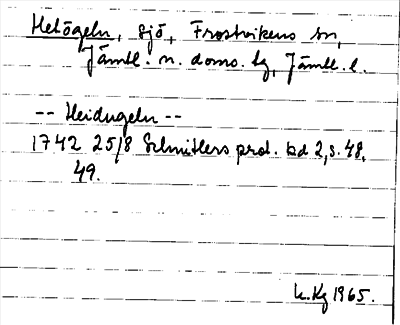 Hetögeln, sjö, Frostvikens sn,
Jämtl. n. doms. tg, Jämtl. l.
-- Heidugeln --
1742 25/8 Schnitlers prot. bd 2, s. 48,
49.
K. Kg 1965.